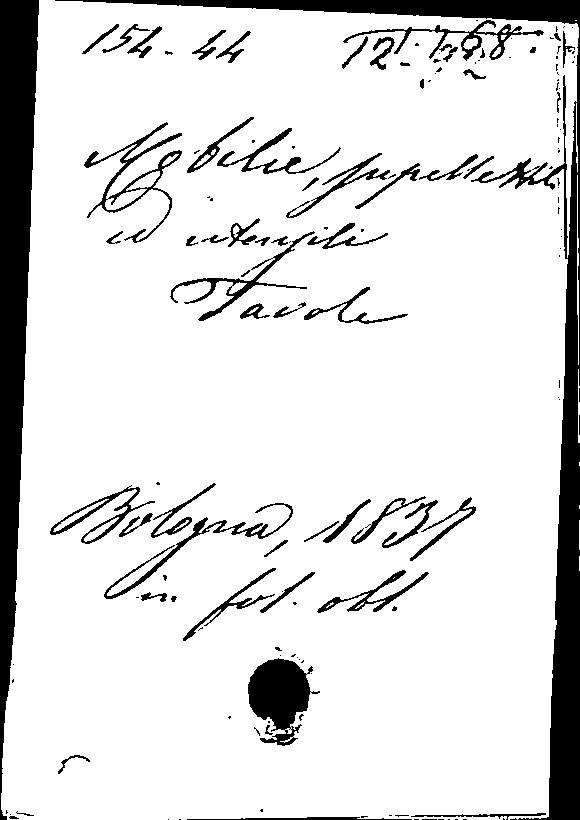 154-44
Mobilie, supellettili
ed utensili
Tavole
Bologna, 1837
in fol. obl.